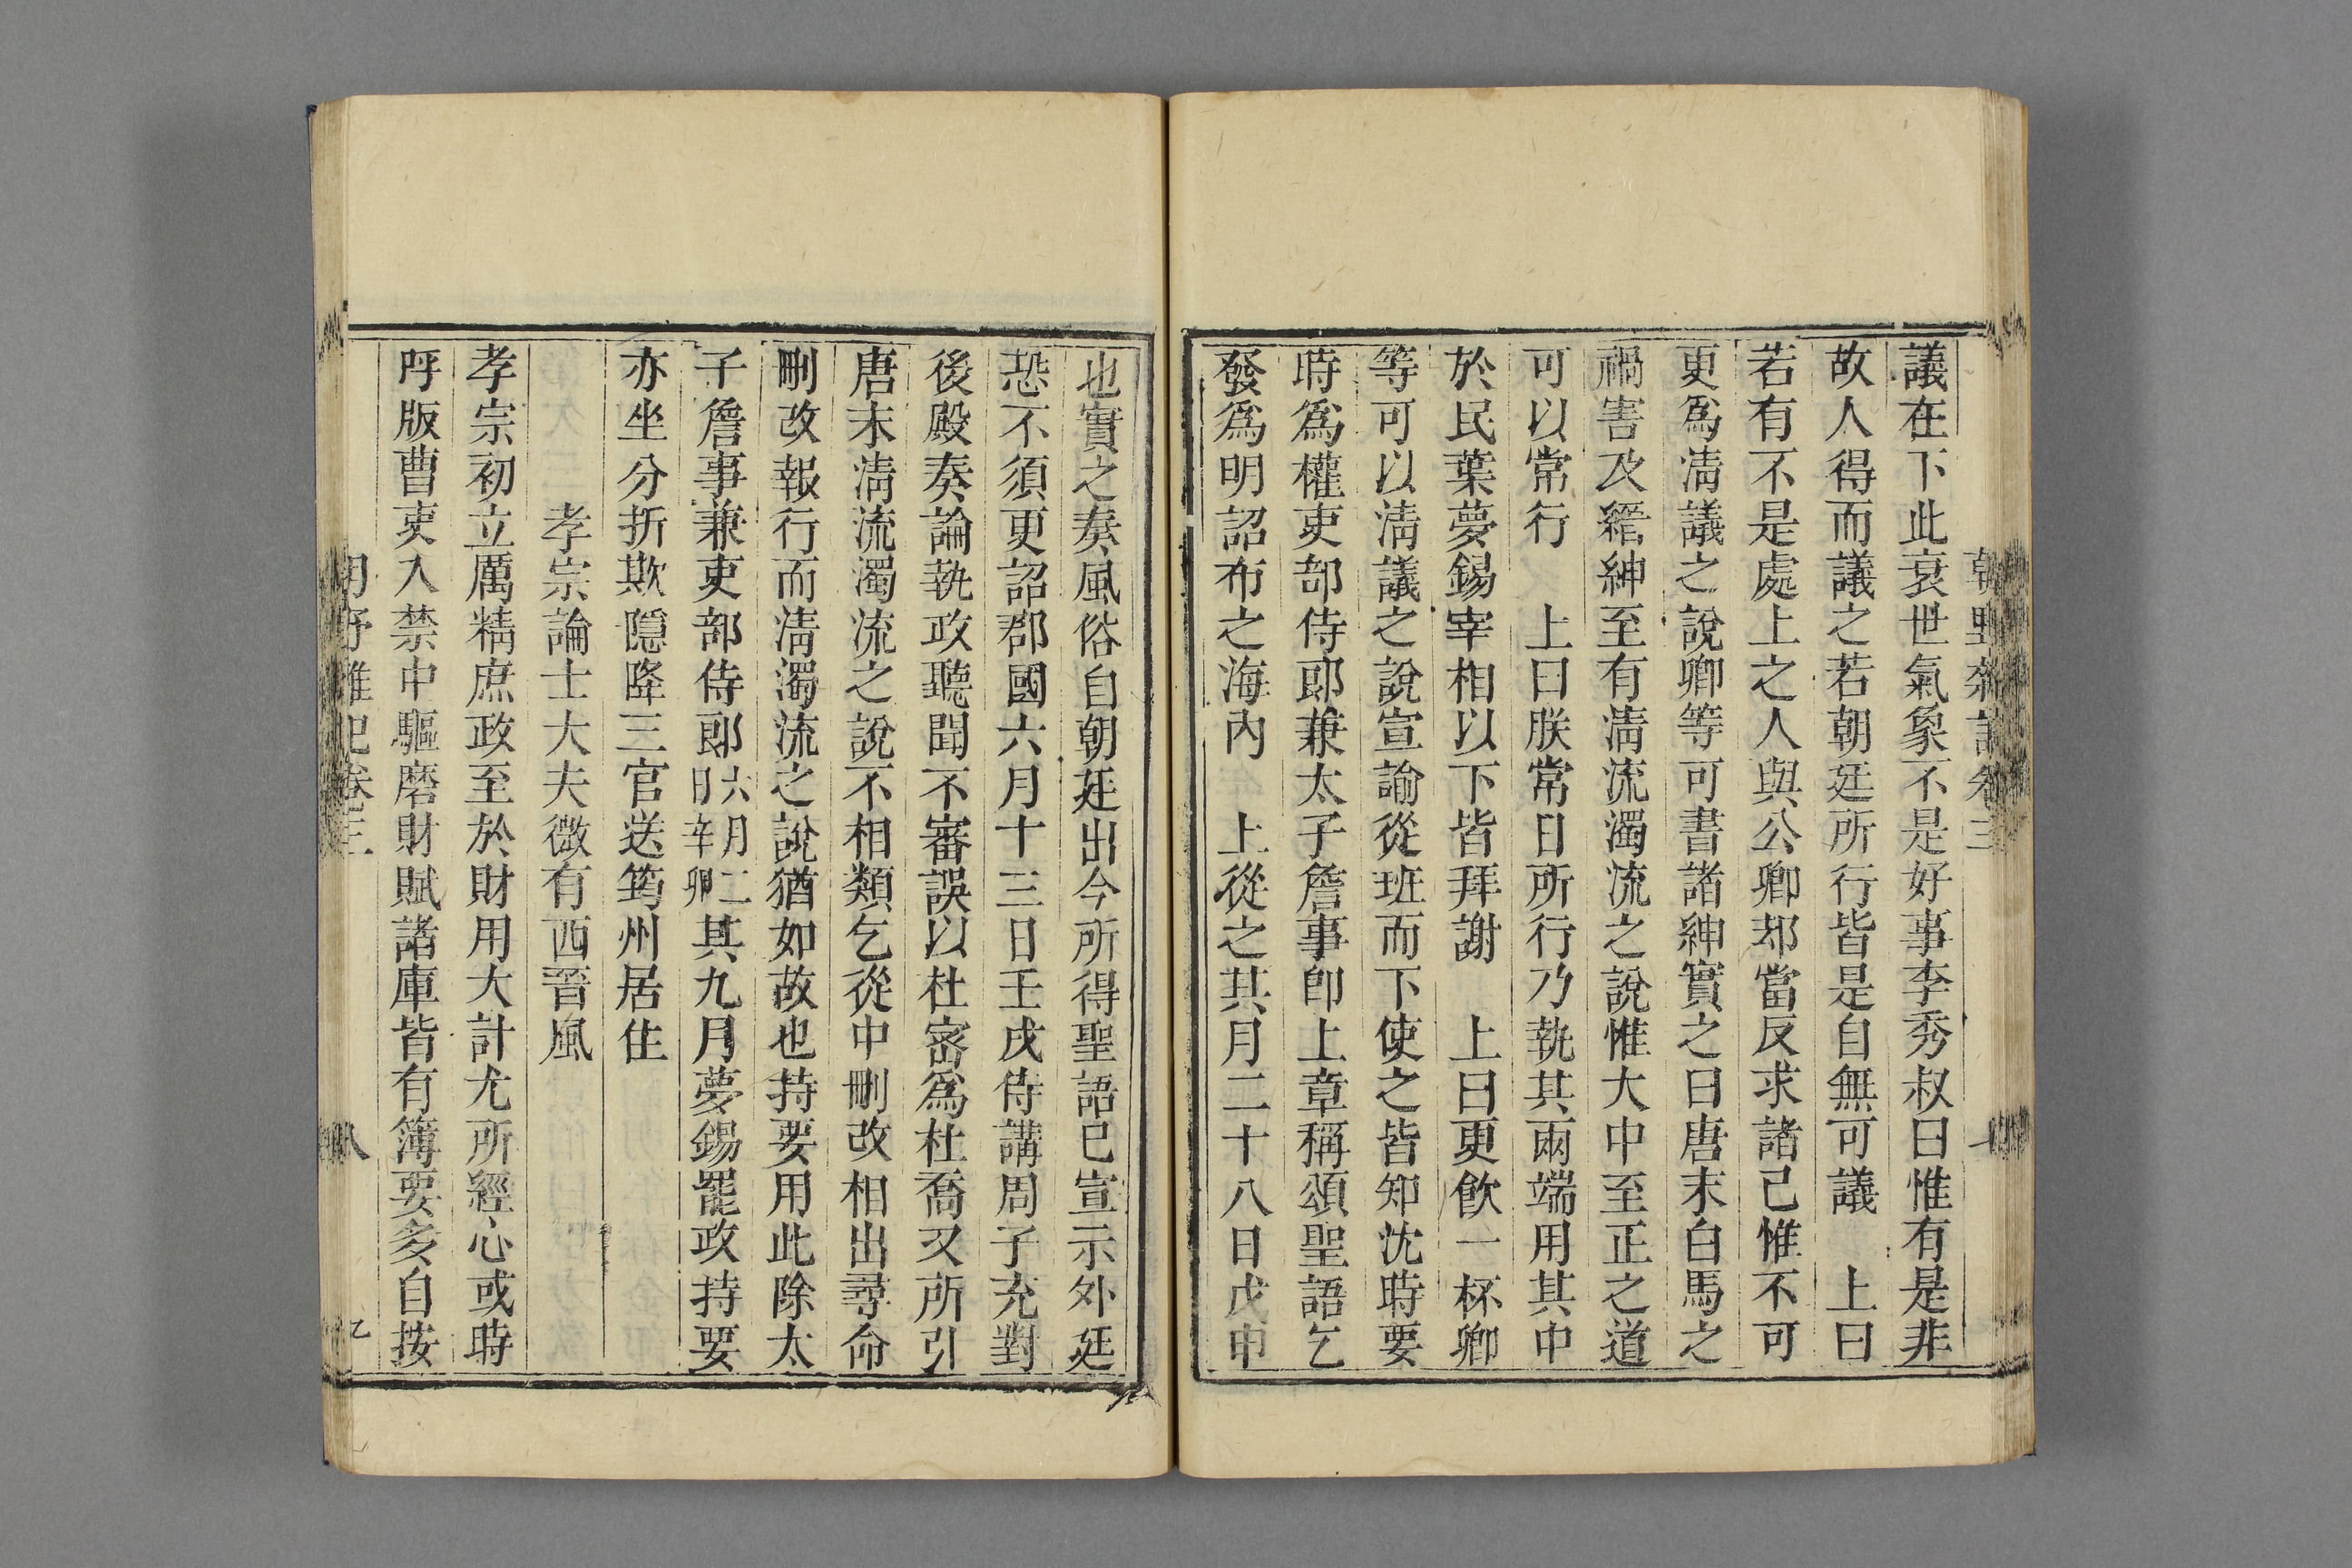 議在下此衰世氣象不是好事李秀叔曰惟有是非
故人得而議之若朝廷所行皆是自無可議　上曰
若有不是處上之人與公卿却當反求諸己惟不可
更爲淸議之說卿等可書諸紳實之曰唐末白馬之
禍害及縉紳至有淸流濁流之說惟大中至正之道
可以常行　上曰朕常日所行乃執其兩端用其中
於民葉夢錫宰相以下皆拜謝　上曰更飲一杯卿
等可以淸議之說宣諭從班而下使之皆知沈時要
時爲權吏部侍郎兼太子詹事卽上章稱頌聖語乞
發爲明詔布之海內　上從之其月二十八日戊申
也實之奏風俗自朝廷出今所得聖語已宣示外廷
恐不須更詔郡國六月十三日壬戌侍講周子充對
後殿奏論執政聽聞不審誤以杜密爲杜喬又所引
唐末淸流濁流之說不相類乞從中刪改相出尋命
刪改報行而淸濁流之說猶如故也持要用此除太
子詹事兼吏部侍郎六月二日辛卿其九月夢錫罷政持要
亦坐分折欺隱降三官送筠州居住
孝宗論士大夫微有西晉風
孝宗初立厲精庶政至於財用大計尤所經心或時
呼版曹吏入禁中驅磨財賦諸庫皆有簿要多自按
八